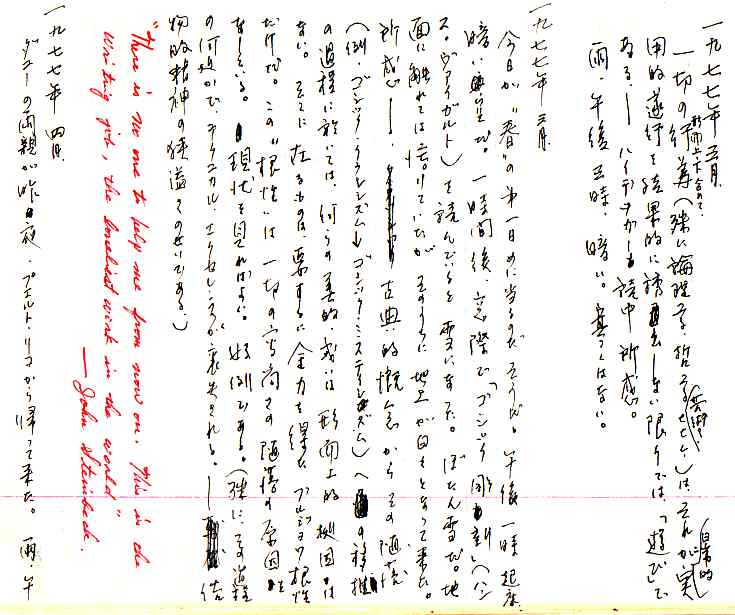 一九七七年 三月.
一切の行為(殊に論理学、哲学、芸術も)は、それが実
形而上・下合めて、
日常的
用的遂行を結果的に誘い出さない限りでは、「遊び」で
ある。— ハイデッガー 読中所感。
雨。午後三時、暗い。寒くはない。
一九七七年 三月.
今日が"春"の第一日めに当るのだそうだ。午後一時起床.
暗い空だ。一時間後、窓際で「ゴシック彫刻」(ハン
ス・ヴァイガルト)を読んでいると雪になった。ぼたん雪だ。地
面に触れては溶けていたが そのうちに地上が白くなって来た。
所感 — 古典的概念からその随境
(例、ゴシック・リアリズム→ゴシック・ミスティシズム)への移推
の過程に於いては、何らの美的、或いは形而上的根因は
ない。そこに在るものは、要するに金力を得たブルジョワ根性
だけだ。この"根性"は一切の高尚さの堕落の原因を
なしている。現状を見ればよい。好例である。(殊に、その過程
の何処かで、テクニカル・エクセレンスが喪失される。— 俗
物的精神の狭溢さのせいである。)
"There is no one to help me from now on. This is the
writing job, the loneliest work in the world"
— John Steinbeck.
一九七七年 四月.
の両親が昨日夜、プエルト・リコから帰って来た。雨、午